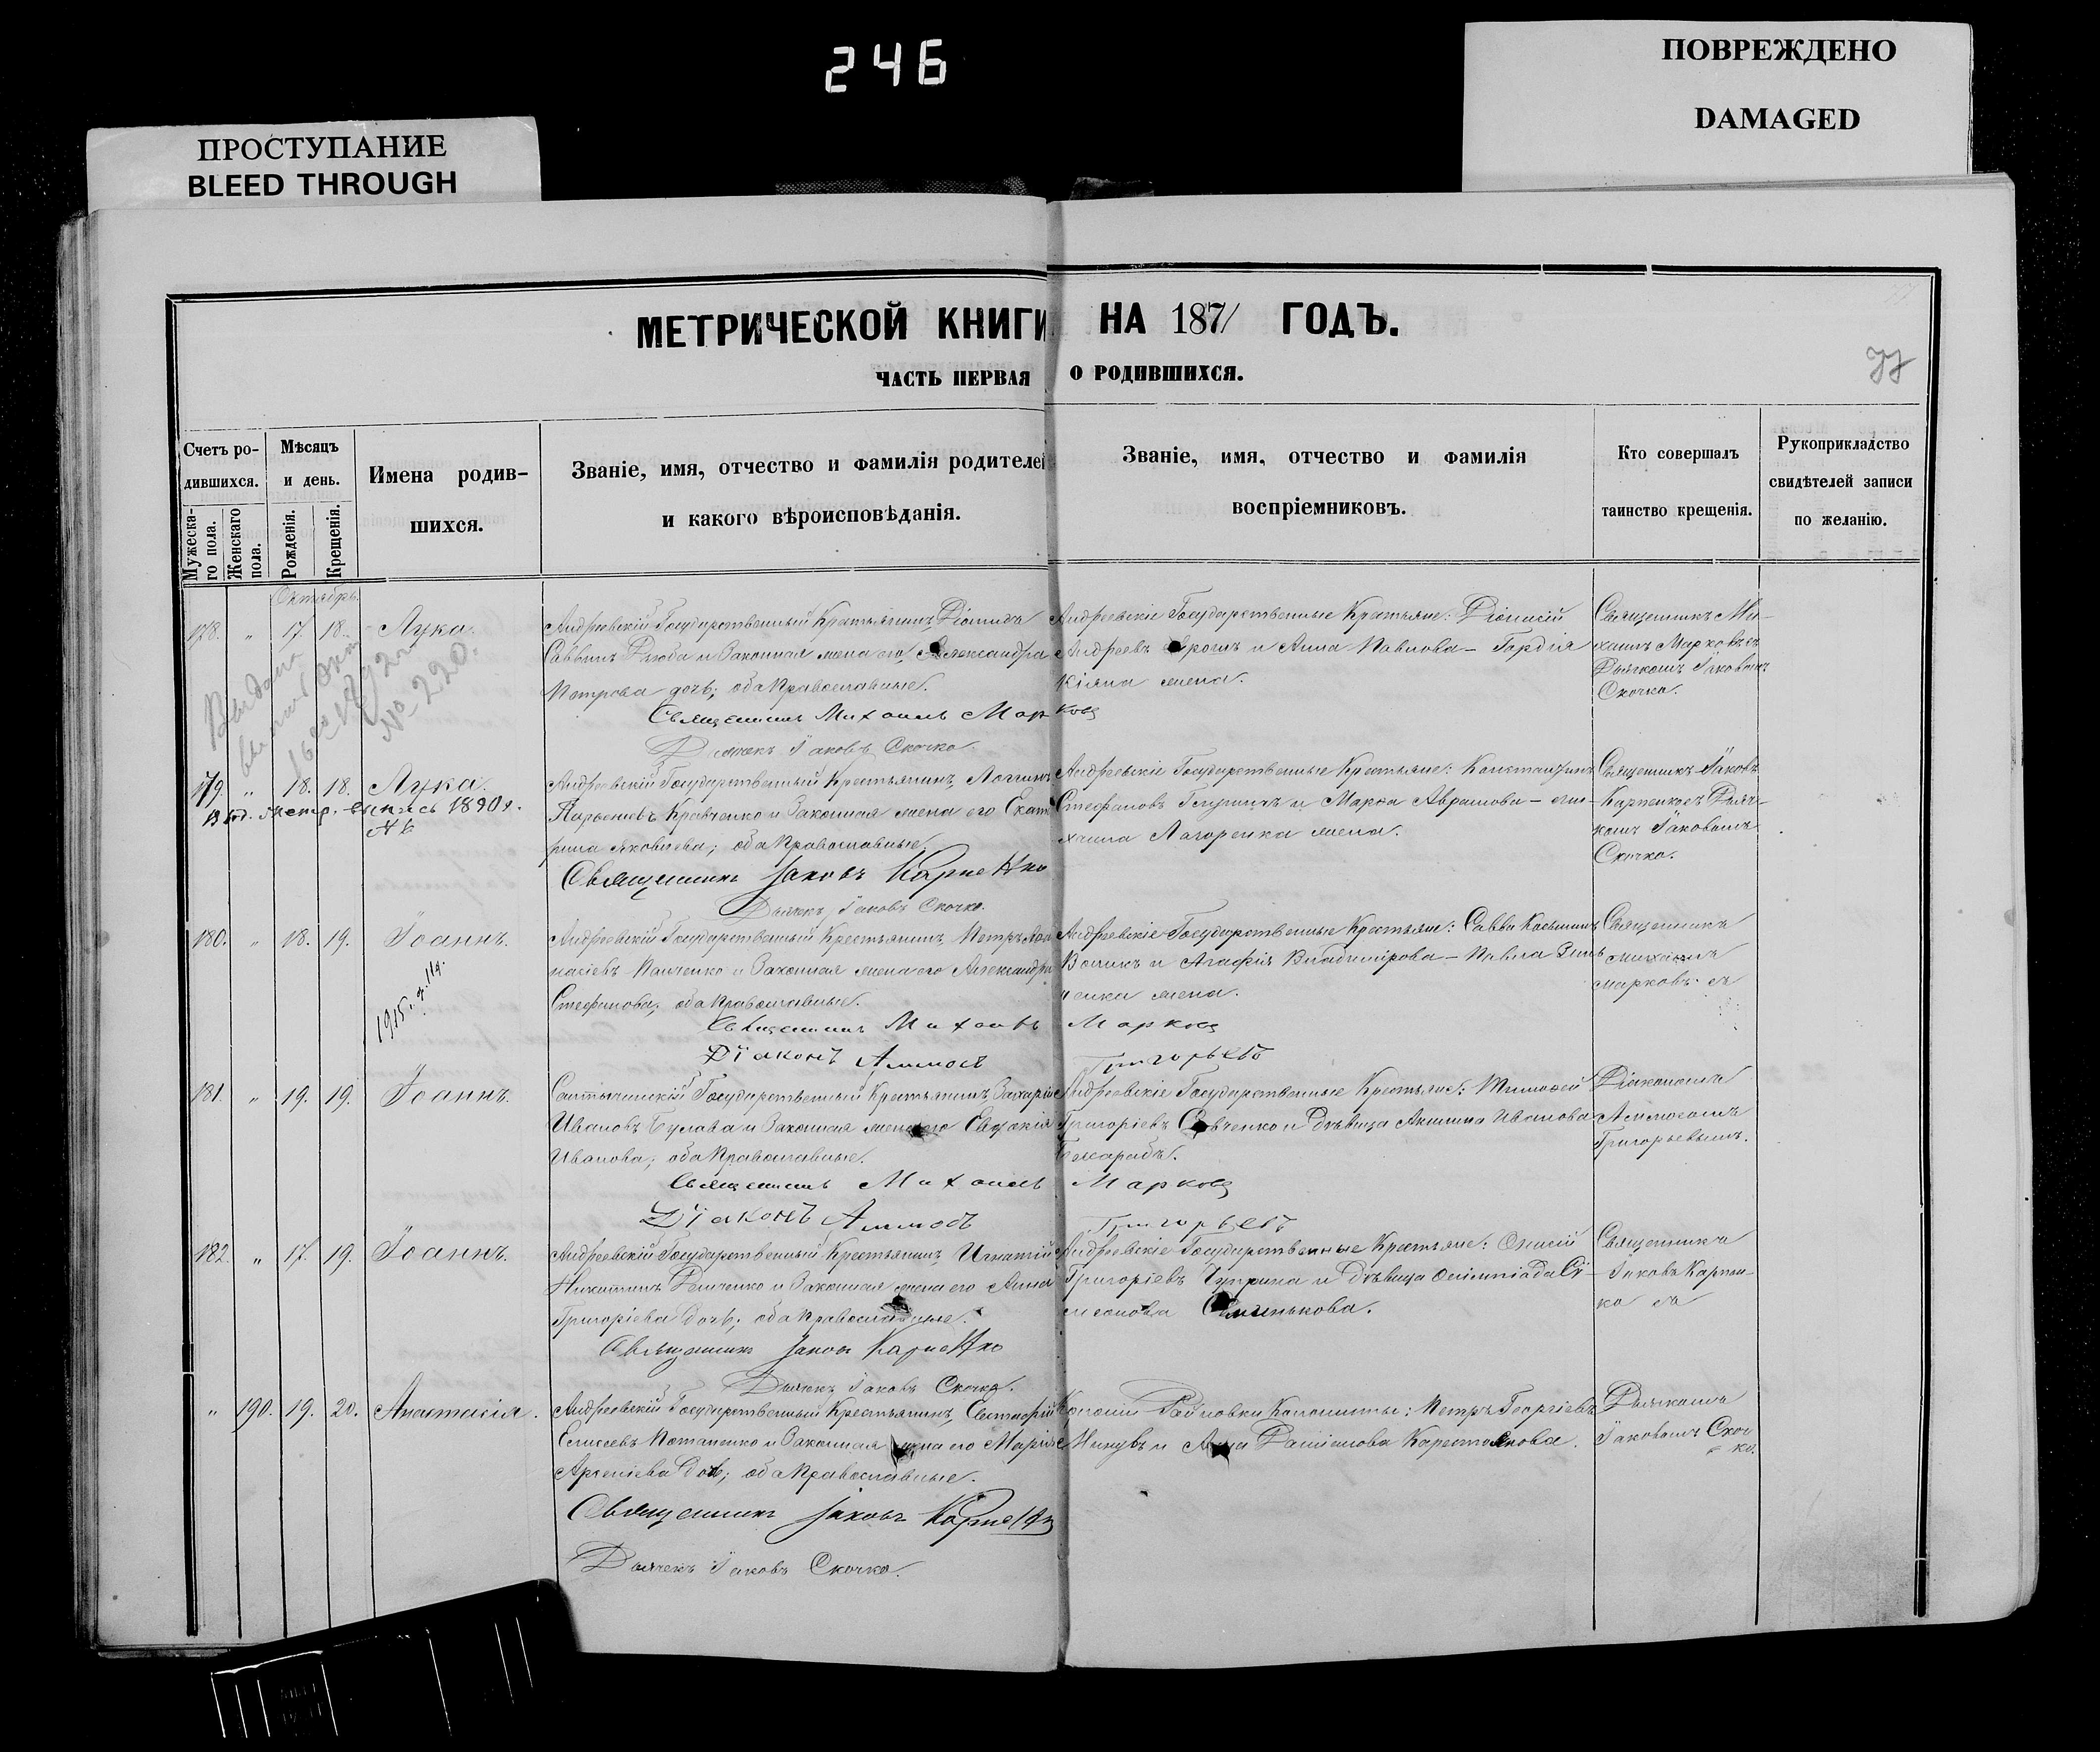 246
ПОВРЕЖДЕНО
DAMAGED
ПРОСТУПАНИЕ
BLEED THROUGH
МЕТРИЧЕСКОЙ КНИГИ НА 1871 ГОДЪ.
ЧАСТЬ ПЕРВАЯ О РОДИВШИХСЯ.
77
Счетъ ро-
дившихся.
Мужеска-
го пола.
Женскаго
пола.
Мѣсяцъ
и день.
Рожденія.
Крещенія.
Имена родив-
шихся.
Званіе, имя, отчество и фамилія родителей
и какого вѣроисповѣданія.
Званіе, имя, отчество и фамилія
воспріемниковъ.
Кто совершалъ
таинство крещенія.
Рукоприкладство
свидѣтелей записи
по желанію.
Октябрь.
178. " 17. 18. Лука.
Андреевскій Государственный Крестьянинъ,
Саввинъ и Законная жена его, Александра
Петрова дочь; оба Православные.
Священникъ Михаилъ Марковъ
Дьячекъ Іаковъ Скочко.
Андреевскіе Государственные Крестьяне: Діонисій
Андреевъ и Анна Павлова – Гордія
жена.
Священникъ Ми-
хаилъ Марковъ съ
Дьячкомъ Іаковомъ
Скочко.
Выдана
№ 220.
179. " 18. 18. Лука.
1890 г.
№ 6
Андреевскій Государственный Крестьянинъ, Логгинъ
Кравченко и Законная жена его Екате-
рина Яковлева; оба Православные.
Священникъ Іаковъ Карпенко
Дьячекъ Іаковъ Скочко.
Андреевскіе Государственные Крестьяне: Константинъ
Стефановъ и Марфа Аврамова – Ми-
хаила жена.
Священникъ Іаковъ
Карпенко съ Дьяч-
комъ Іаковомъ
Скочко.
180. " 18. 19. Іоаннъ.
1915. г. 114.
Андреевскій Государственный Крестьянинъ, Петръ
Панченко и Законная жена его Александра
Стефанова; оба Православные.
Священникъ Михаилъ Марковъ
Діаконъ Аммосъ Григорьевъ
Андреевскіе Государственные Крестьяне: Савва Косьминъ
Воликъ и Агафія Владимірова – Павла Зинь-
ченка жена.
Священникъ
Михаилъ
Марковъ съ
181. " 19. 19. Іоаннъ.
Государственный Крестьянинъ, Захарій
Ивановъ Булава и Законная жена его Евдокія
Иванова; оба Православные.
Священникъ Михаилъ Марковъ
Діаконъ Аммосъ Григорьевъ
Андреевскіе Государственные Крестьяне: Тимофей
Григоріевъ и Дѣвица Акилина Иванова
Бемарабъ.
Діакономъ
Аммосомъ
Григорьевымъ.
182. " 17. 19. Іоаннъ.
Андреевскій Государственный Крестьянинъ, Игнатій
Никитинъ Демченко и Законная жена его Анна
Григоріева дочь; оба Православные.
Священникъ Іаковъ Карпенко
Дьячекъ Іаковъ Скочко.
Андреевскіе Государственные Крестьяне: Онисій
Григоріевъ Чуприна и Дѣвица Олимпіада Сі-
меонова
Священникъ
Іаковъ Карпен-
ко съ
" 190. 19. 20. Анастасія.
Андреевскій Государственный Крестьянинъ,
Елисеевъ Потапенко и Законная жена его Марія
Арсеніева дочь; оба Православные.
Священникъ Іаковъ Карпенко
Дьячекъ Іаковъ Скочко.
Колоніи Колонисты: Петръ Георгіевъ
и Анна
Дьячкомъ
Іаковомъ Скоч-
ко.